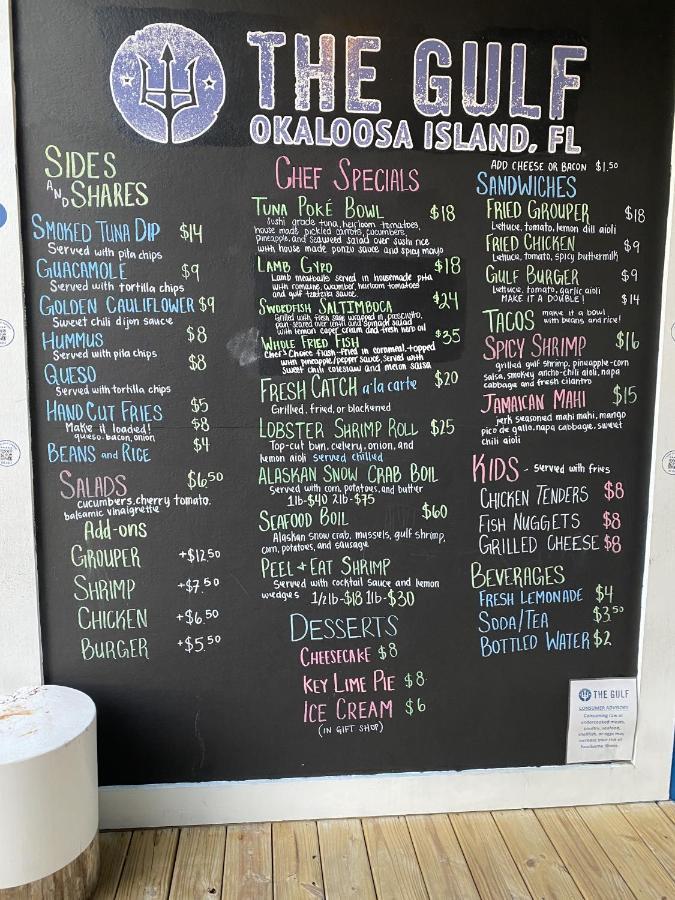 THE GULF
OKALOOSA ISLAND, FL
SIDES
AND SHARES
SMOKED TUNA DIP $14
Served with pita chips
GUACAMOLE $9
Served with tortilla chips
GOLDEN CAULIFLOWER $9
Sweet chili dijon sauce
HUMMUS $8
Served with pita chips
QUESO $8
Served with tortilla chips
HAND CUT FRIES $5
Make it loaded! $8
queso, bacon, onion
BEANS and RICE $4
SALADS $6.50
cucumbers, cherry tomato,
balsamic vinaigrette
Add-ons
GROUPER +$12.50
SHRIMP +$7.50
CHICKEN +$6.50
BURGER +$5.50
CHEF SPECIALS
TUNA POKÉ BOWL $18
Sushi grade tuna, heirloom tomatoes,
house made pickled carrots, cucumbers,
pineapple, and seaweed salad over sushi rice
with house made ponzu sauce and spicy mayo
LAMB GYRO $18
Lamb meatballs served in housemade pita
with romaine, cucumber, heirloom tomatoes
and gulf tzatziki sauce.
SWORDFISH SALTIMBOCA $24
Grilled with fresh sage wrapped in prosciutto,
pan-seared over lentil and spinach salad
with lemon caper cream and fresh herb oil
WHOLE FRIED FISH $35
Chef's Choice flash-fried in cornmeal, topped
with pineapple/pepper sauce, served with
sweet chili coleslaw and melon salsa
FRESH CATCH a·la carte $20
Grilled, fried, or blackened
LOBSTER SHRIMP ROLL $25
Top-cut bun, celery, onion, and
lemon aioli served chilled
ALASKAN SNOW CRAB BOIL
Served with corn, potatoes, and butter
1lb-$40 2lb-$75
SEAFOOD BOIL $60
Alaskan snow crab, mussels, gulf shrimp,
corn, potatoes, and sausage
PEEL + EAT SHRIMP
Served with cocktail sauce and lemon
wedges 1/2lb-$18 1lb-$30
DESSERTS
CHEESECAKE $8
KEY LIME PIE $8
ICE CREAM $6
(IN GIFT SHOP)
ADD CHEESE OR BACON $1.50
SANDWICHES
FRIED GROUPER $18
Lettuce, tomato, lemon dill aioli
FRIED CHICKEN $9
Lettuce, tomato, spicy buttermilk
GULF BURGER $9
Lettuce, tomato, garlic aioli
MAKE IT A DOUBLE! $14
TACOS make it a bowl
with beans and rice!
SPICY SHRIMP $16
grilled gulf shrimp, pineapple-corn
salsa, smokey ancho-chili aioli, napa
cabbage and fresh cilantro
JAMAICAN MAHI $15
jerk seasoned mahi mahi, mango
pico de gallo, napa cabbage, sweet
chili aioli
KIDS - served with fries
CHICKEN TENDERS $8
FISH NUGGETS $8
GRILLED CHEESE $8
BEVERAGES
FRESH LEMONADE $4
SODA/TEA $3.50
BOTTLED WATER $2
THE GULF
CONSUMER ADVISORY
Consuming raw or
undercooked meats,
poultry, seafood,
shellfish, or eggs may
increase your risk of
foodborne illness.